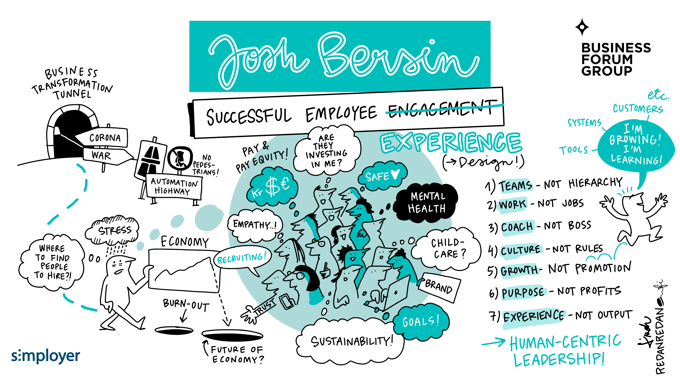 Josh Bersin
BUSINESS
FORUM
GROUP
BUSINESS
TRANSFORMATION
TUNNEL
SUCCESSFUL EMPLOYEE ENGAGEMENT
EXPERIENCE
(→Design!)
CORONA
WAR
NO
PEDES-
TRIANS!
AUTOMATION
HIGHWAY
STRESS
WHERE
TO FIND
PEOPLE
TO HIRE?!
ECONOMY
BURN-OUT
FUTURE OF
ECONOMY?
PAY &
PAY EQUITY!
Kr $ €
ARE
THEY
INVESTING
IN ME?
SAFE ♥
MENTAL
HEALTH
EMPATHY..!
RECRUITING!
CHILD-
CARE?
TRUST
BRAND
GOALS!
SUSTAINABILITY!
etc.
CUSTOMERS
SYSTEMS
TOOLS
I'M
GROWING!
I'M
LEARNING!
1) TEAMS - NOT HIERARCHY
2) WORK - NOT JOBS
3) COACH - NOT BOSS
4) CULTURE - NOT RULES
5) GROWTH - NOT PROMOTION
6) PURPOSE - NOT PROFITS
7) EXPERIENCE - NOT OUTPUT
→ HUMAN-CENTRIC
LEADERSHIP!
simployer
REDANREDAN.fi